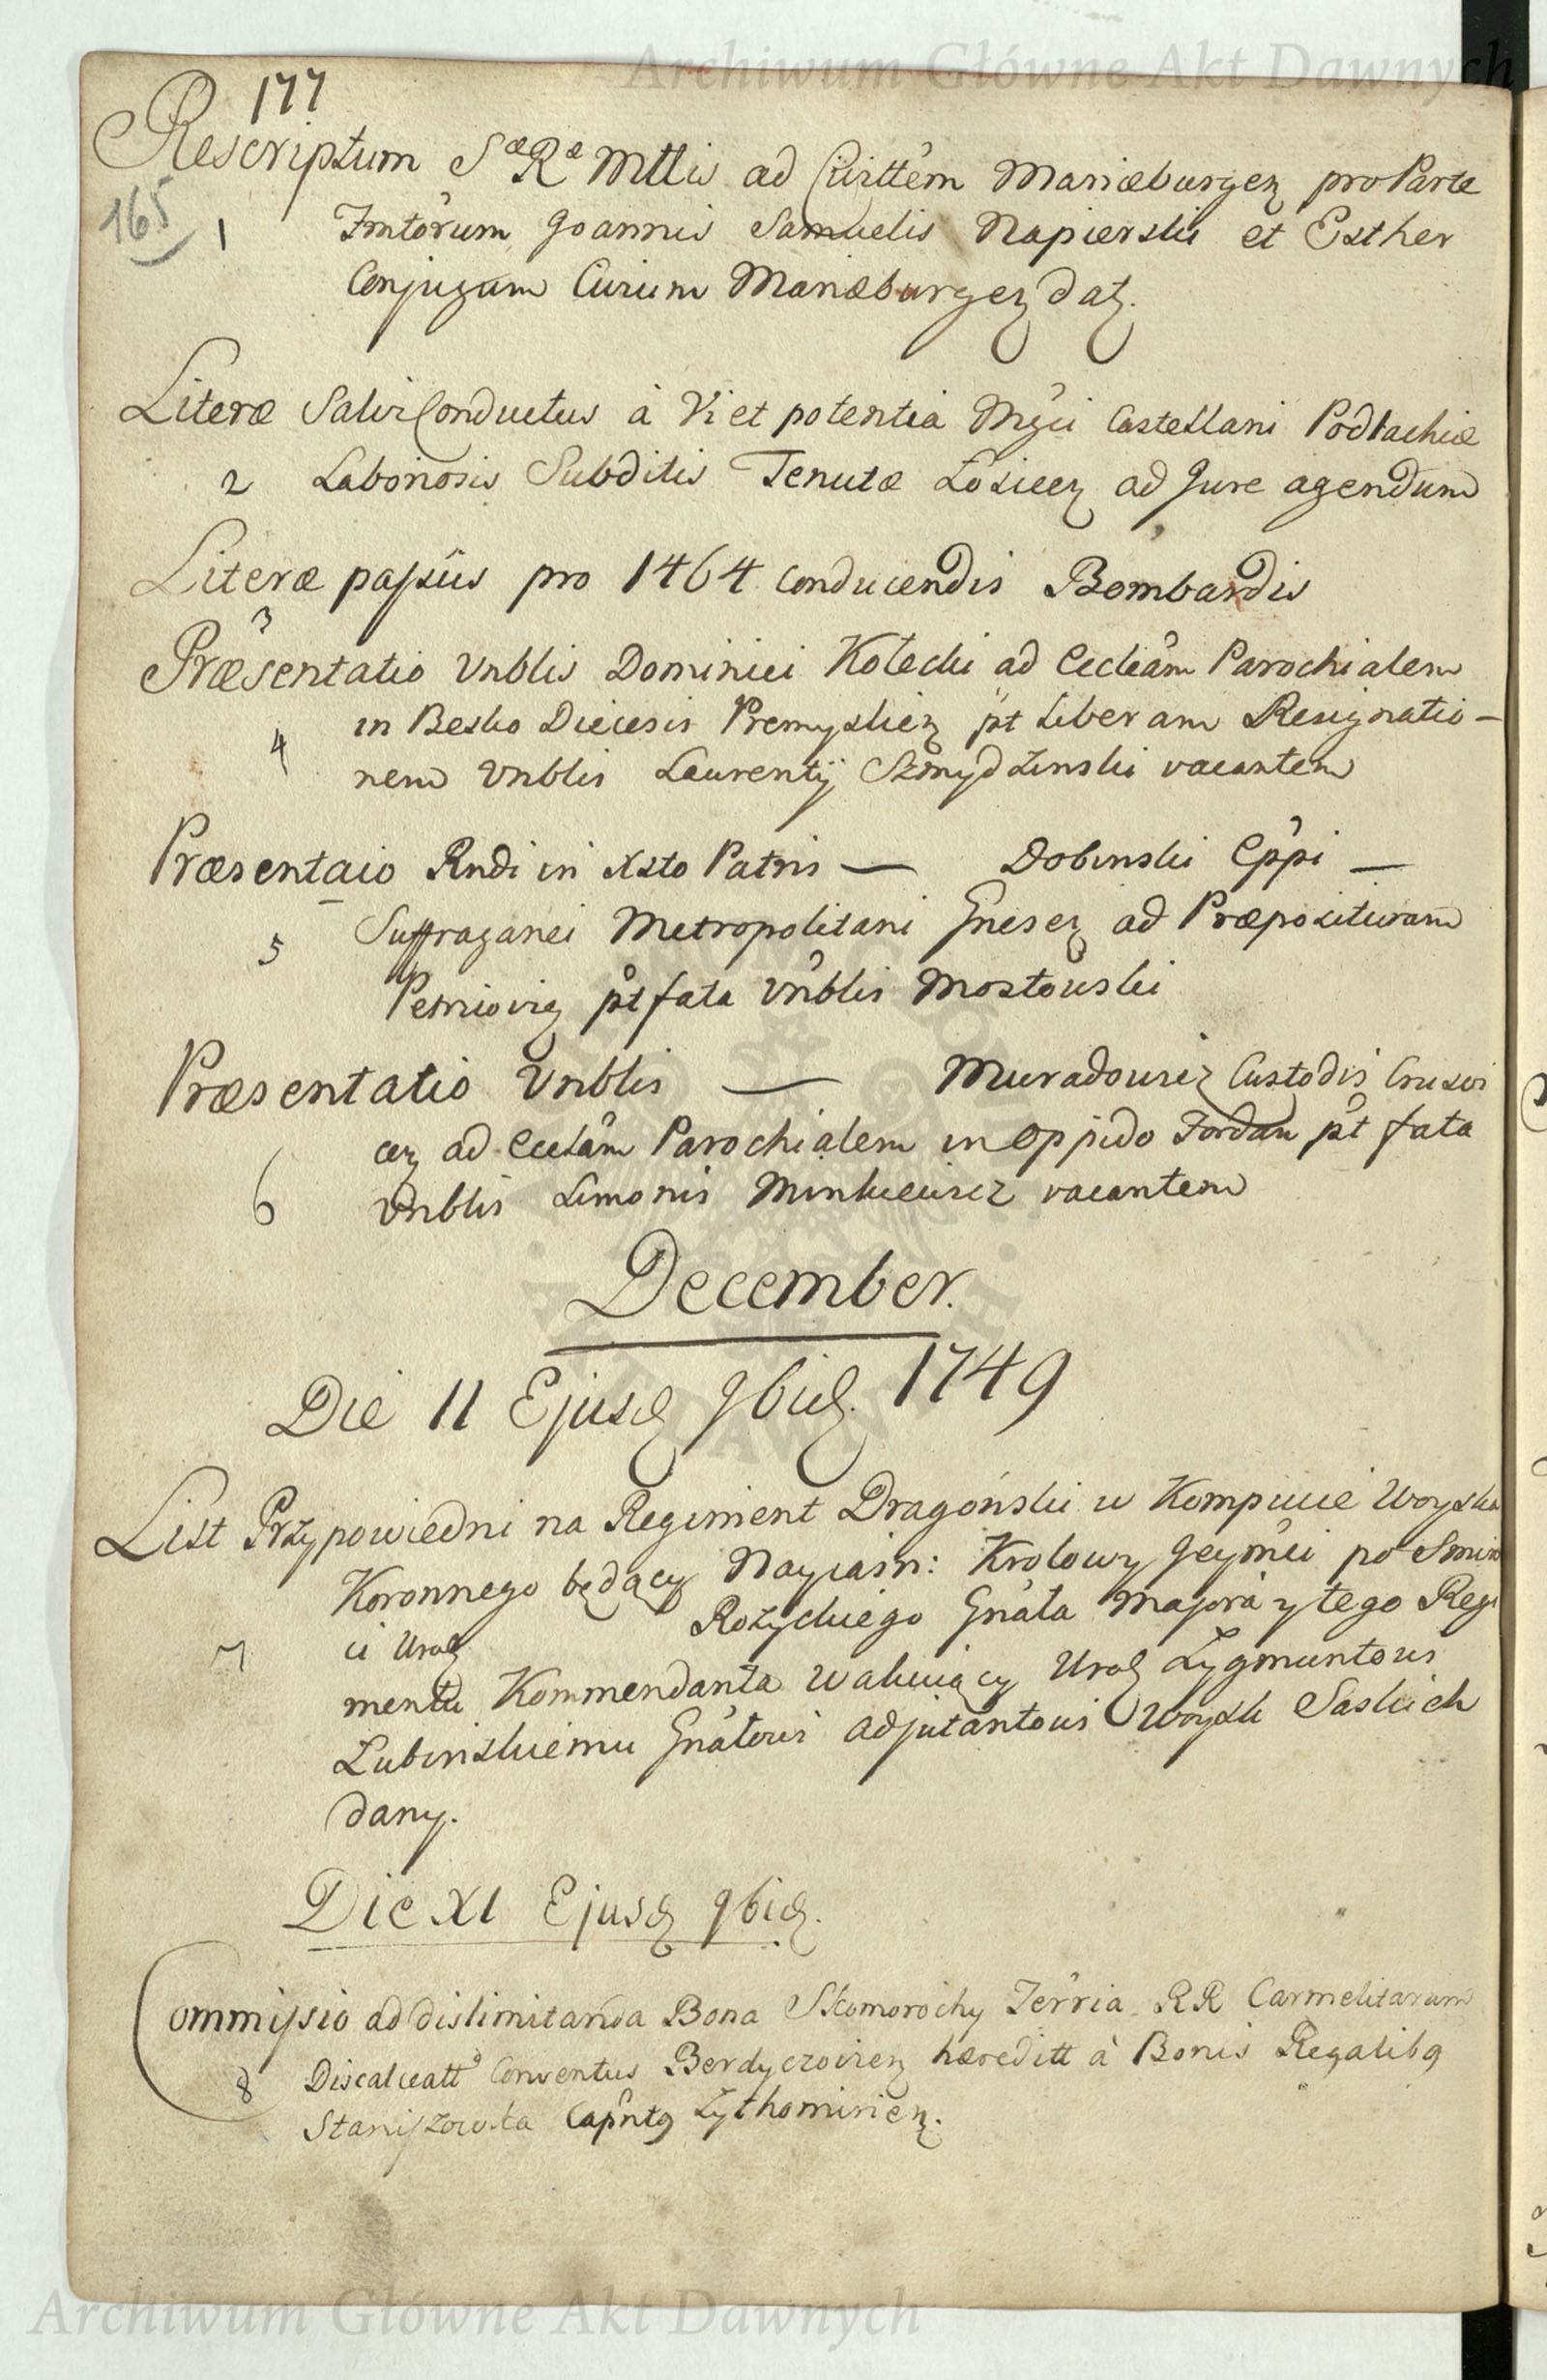 Archiwum Główne Akt Dawnych
177
Rescriptum S æ R æ Mttis ad Civittem Mariæburgen pro Parte
165
1 Fmtorum Joannis Samuelis Napierski et Esther
Conjugum Civium Mariæburgen dat.
Literæ Salvi Conductus à Vi et potentia Mgci Castellani Podlachiæ
2 Laboriosis Subditis Tenutæ Łosicen ad Jure agendum
Literæ passûs pro 1464 conducendis Bombardis
3
Præsentatio Vnblis Dominici Kołecki ad Eccleam Parochialem
in Besko Diecesis Premyslien pt liberam Resignatio-
4
nem Vnblis Laurentÿ Szmydzinski vacantem
Præsentaio Rndi in Xsto Patris — Dobinski Eppi —
5 Suffraganei Metropolitani Gnesen ad Præposituram
pt fata Vnblis Mostowski
Præsentatio Vnblis — Muradowicz Custodis Crusvi
cen ad Eccleam Parochialem in oppido Fordan pt fata
6 Vnblis Simonis Minkiewicz vacantem
December.
Die 11 Ejusd 9bid. 1749
List Przypowiedni na Regiment Dragoński w Kompucie Woyska
Koronnego będący Nayiasn: Krolowy Jeymci po Smier
7 ci Urod Rozyckiego Gnała Majora y tego Regi
mentu Kommendanta wakuiący Urod Zygmuntowi
Lubinskiemu Gnałowi Adjutantowi Woysk Saskich
dany.
Die XI Ejusd 9bid.
Commissio ad dislimitanda Bona Skomorochy Terria RR Carmelitarum
8 Discalceatt Conventus Berdyczovien hæreditt à Bonis Regalibq
Staniszowka Capntq Zythomirien.
Archiwum Główne Akt Dawnych